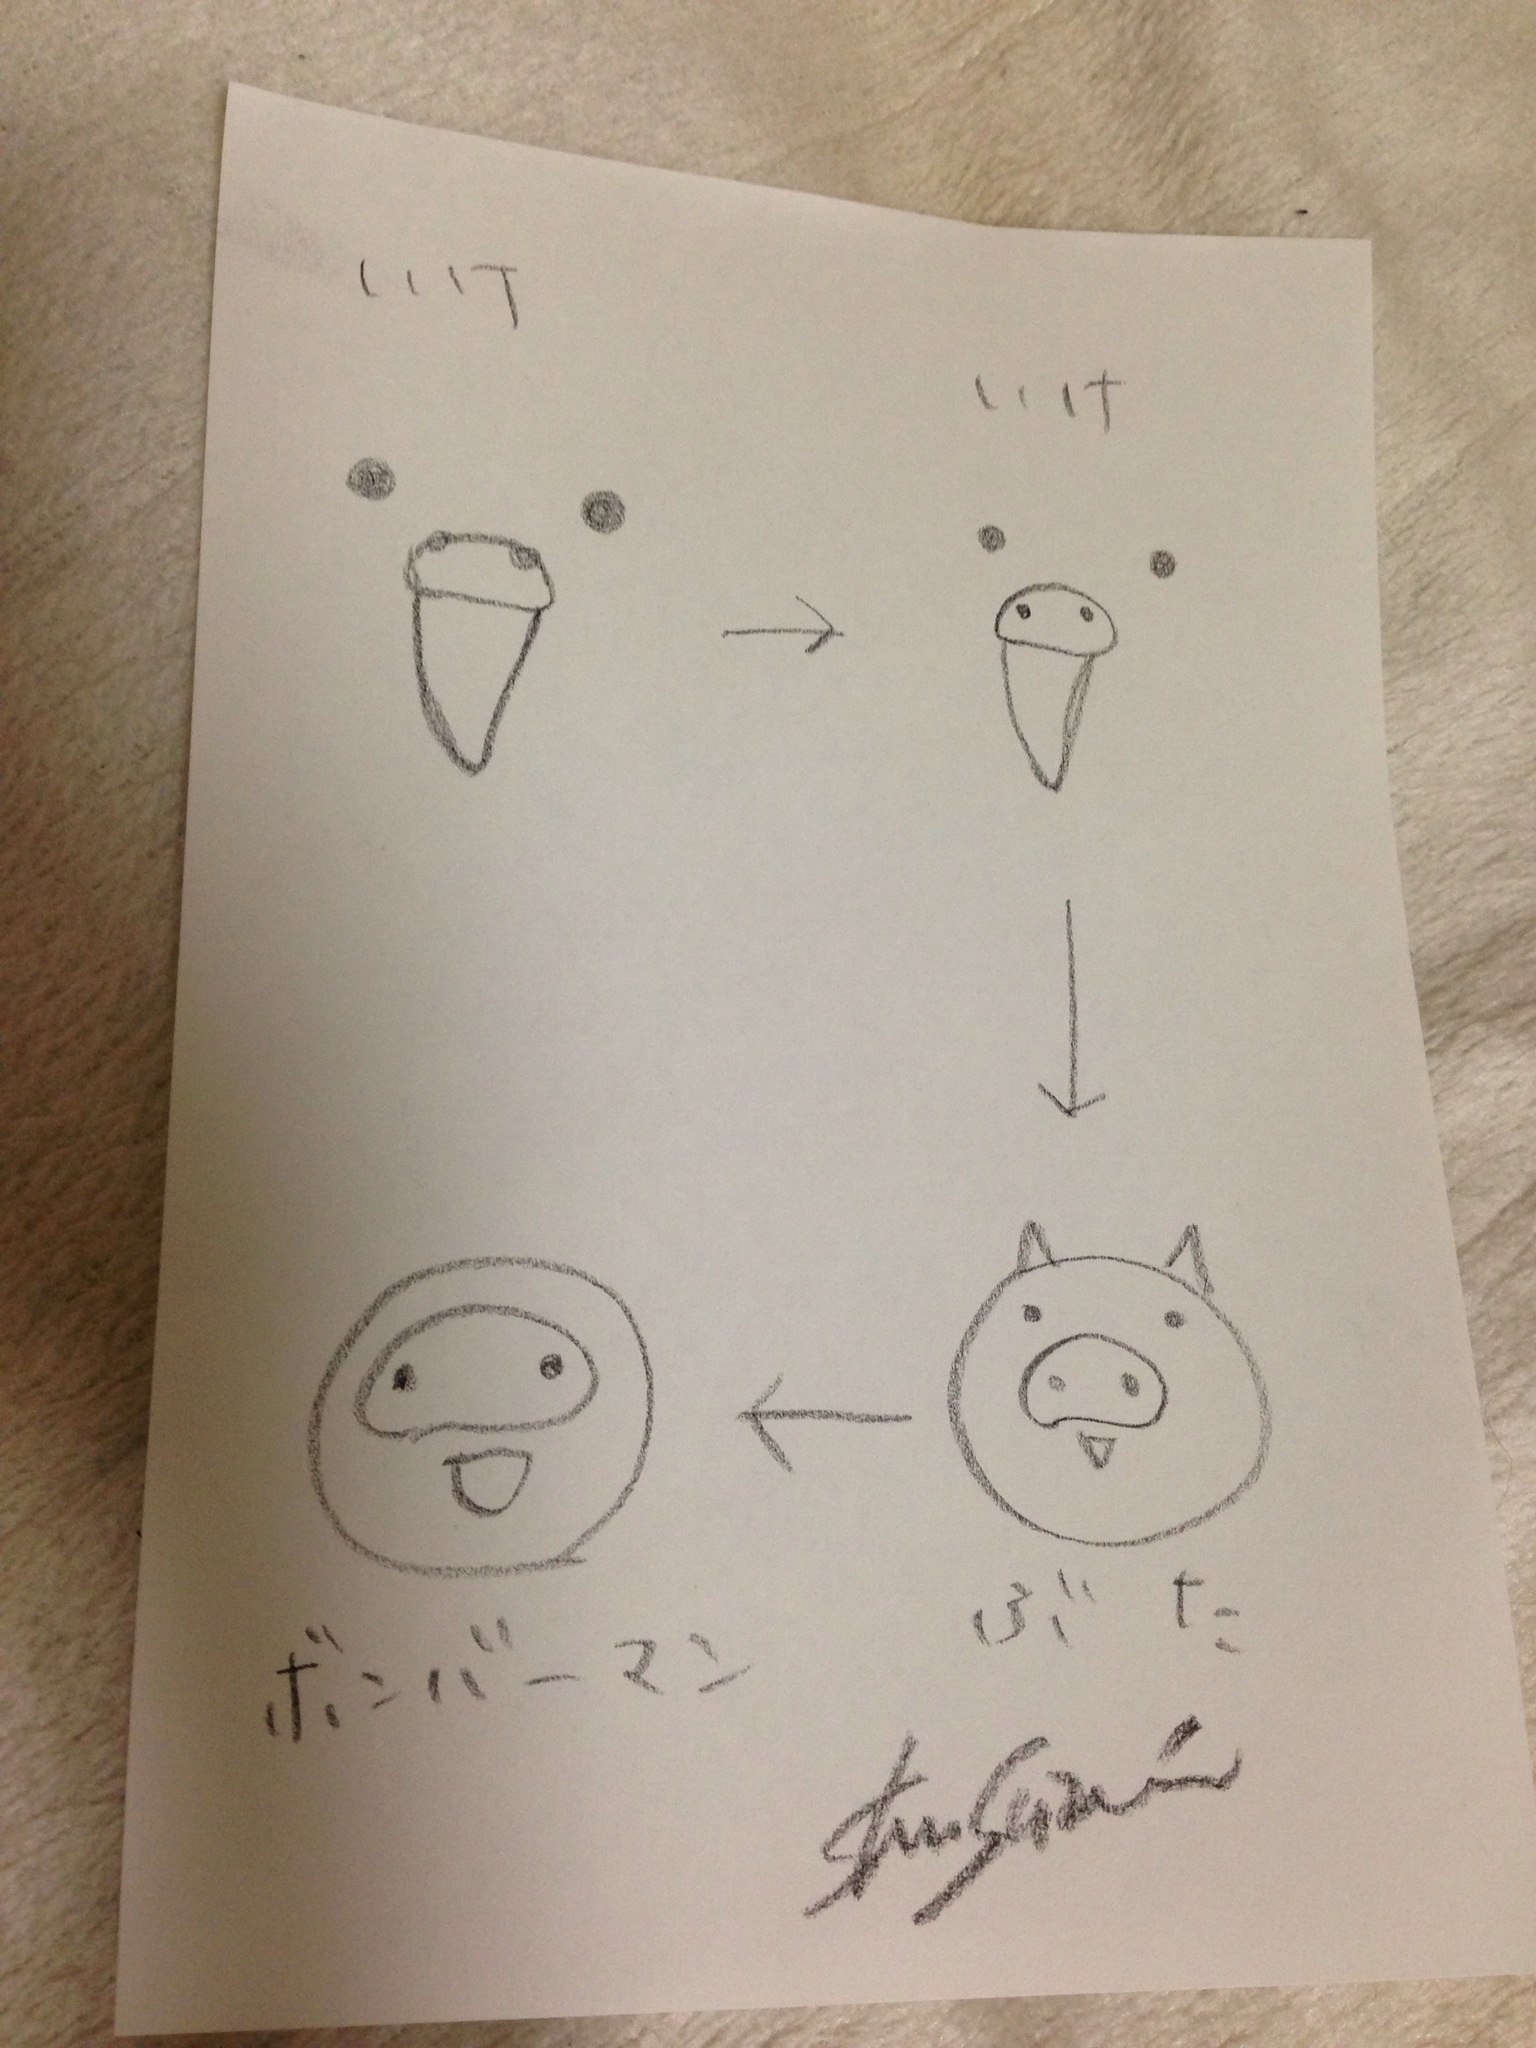 いけ
いけ
ぶた
ボンバーマン